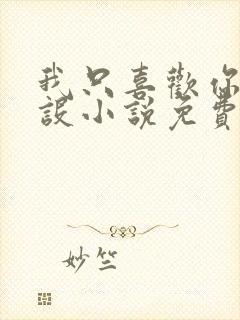 我只喜歡你
設小說免費
妙竺